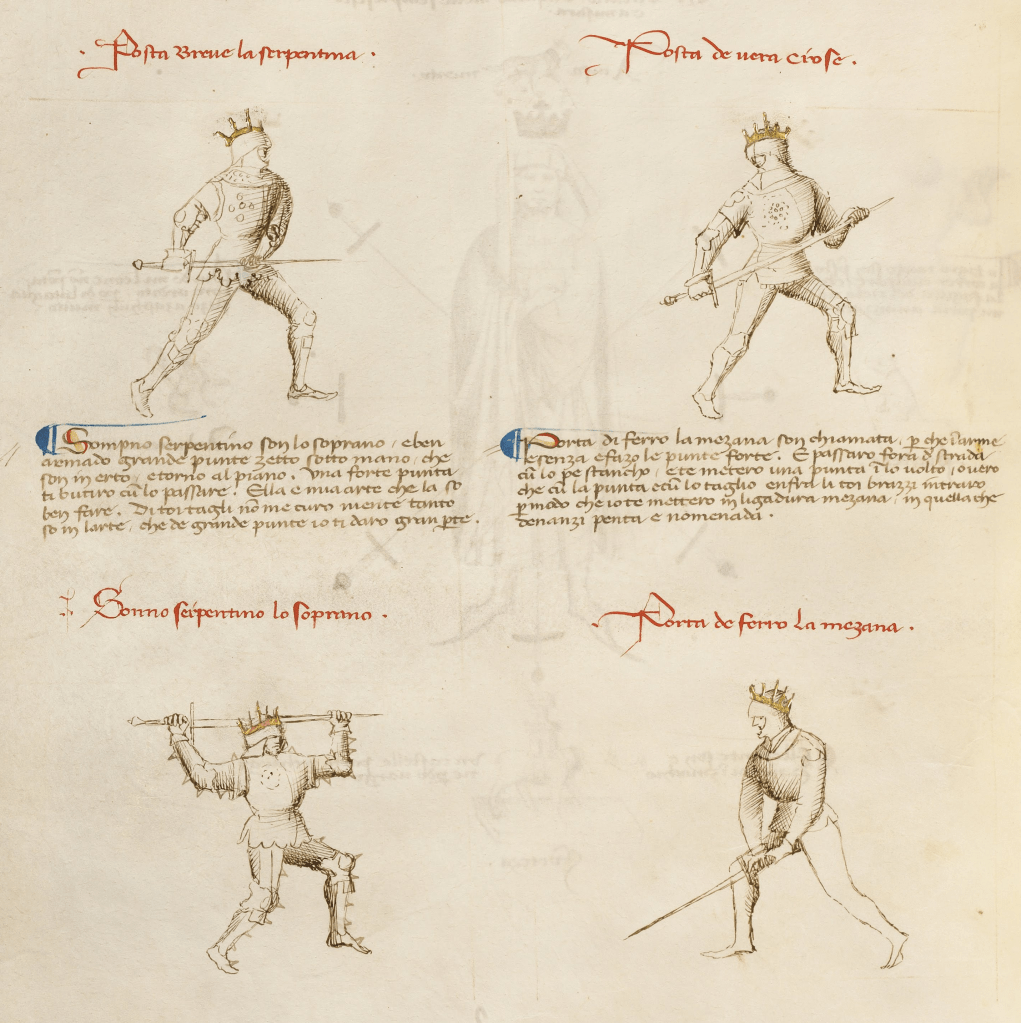 · Posta breve la serpentina ·
Posta de vera crose ·
Sompno serpentino son lo soprano / e ben
armado grande punte zetto sotto mano, che
son in erto, e torno al piano. Una forte punta
ti butirò cū lo passare. Ella e mia arte che la so
ben fare. Di toi tagli nō me curo niente tanto
so in larte, che de grande punte io ti darò gran ꝑte.
Porta di ferro la mezana son chiamata, ꝑ che l'arme
esenza e fazo le punte forte. E passarò fora d' strada
cū lo pe stancho, e te meterò una punta ī lo volto, overo
che cū la punta e cū lo taglio enfra li toi brazzi intrarò
ꝑ modo che io te metterò in ligadura mezana, in quella che
denanzi penta e nomenada.
Sonno serpentino lo soprano ·
· Porta de ferro la mezana ·